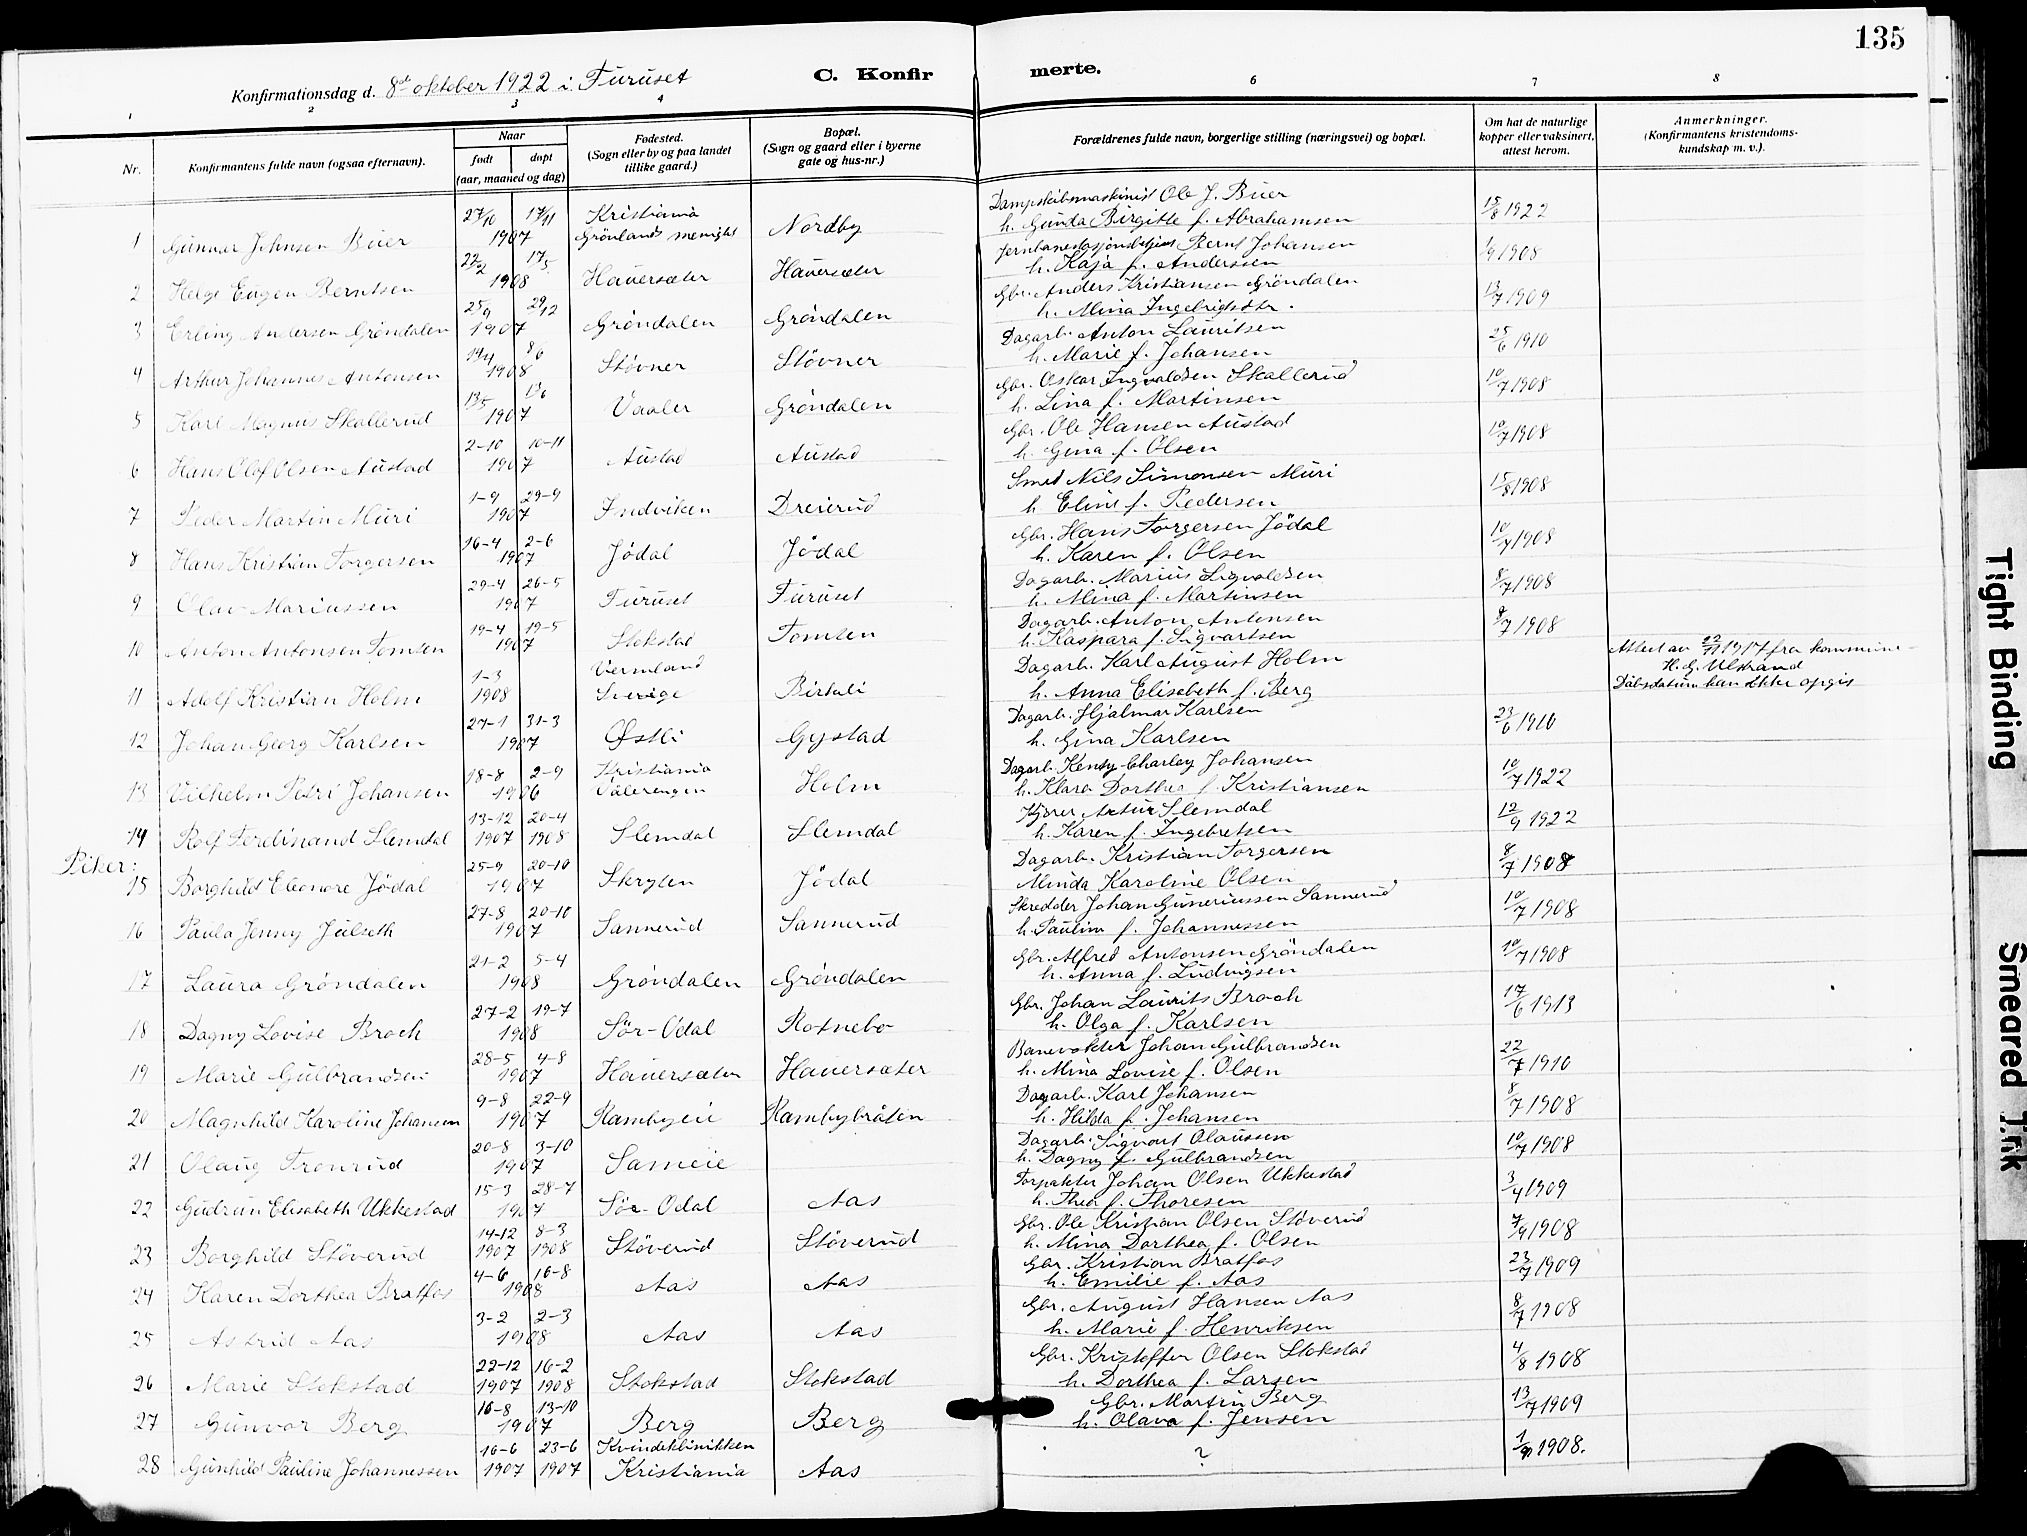 135
C. Konfirmerte.
Konfirmationsdag d. 8de oktober 1922 i Furuset
1 2 3 4 6 7 8
Nr. Konfirmantens fulde navn (ogsaa efternavn). Naar født døpt (aar, maaned og dag) Fødested. (Sogn eller by og paa landet tillike gaard.) Bopæl. (Sogn og gaard eller i byerne gate og hus-nr.) Forældrenes fulde navn, borgerlige stilling (næringsvei) og bopæl. Om hat de naturlige kopper eller vaksinert, attest herom. Anmerkninger. (Konfirmantens kristendoms-kundskap m. v.).
1 Gunnar Johnsen Buer 27/10 17/11 1907 Kristiania Grönlands menighet Nordby Dampskibsmaskinist Ole J. Buer h. Gunda Birgitte f. Abrahamsen 15/8 1922
2 Helge Eugen Berntsen 22/2 17/5 1908 Hauersæter Hauersæter Bernt Johansen h. Kaja f. Anderssen 1/9 1908
3 Erling Andersen Gröndalen 25/9 29/12 1907 Gröndalen Gröndalen Gbr. Anders Kristiansen Gröndalen h. Mina Ingebrigtsdtr. 13/7 1909
4 Arthur Johannes Antonsen 14/4 8/6 1908 Stövner Stövner Dagarb. Anton Lauritsen h. Marie f. Johansen 25/6 1910
5 Karl Magnus Skallerud 13/5 1907 Vaaler Gröndalen Gbr. Oskar Ingvaldsen Skallerud h. Lina f. Martinsen 10/7 1908
6 Hans Olaf Olsen Austad 2-10 10-11 1907 Austad Austad Gbr. Ole Hansen Austad h. Gina f. Olsen 10/7 1908
7 Peder Martin Muri 1-9 29-9 1907 Indviken Dreierud Smed Nils Simonsen Muri h Eline f. Pedersen 15/8 1908
8 Hans Kristian Torgersen 16-4 2-6 1907 Jödal Jödal Gbr. Hans Torgersen Jödal h. Karen f. Olsen 10/7 1908
9 Olav Mariussen 29-4 26-5 1907 Furuset Furuset Dagarb. Marius Sigvaldsen h. Mina f. Martinsen 8/7 1908
10 Anton Antonsen Tomten 19-4 19-5 1907 Stokstad Tomten Dagarb. Anton Antonsen h. Kaspara f. Sigvartsen 8/7 1908
11 Adolf Kristian Holm 1-3 1908 Vermland Sverige Birkeli Dagarb. Karl August Holm h. Anna Elisabeth f. Berg Attest av 22/11 1917 fra kommune- H. G. Ulstrand Dåbsdatum kan ikke opgis
12 Johan Georg Karlsen 27-1 31-3 1907 Østli Gystad Dagarb. Hjalmar Karlsen h. Gina Karlsen 23/6 1910
13 Vilhelm Petri Johansen 18-8 2-9 1906 Kristiania Vålerengen Holm Dagarb. Kensy Charley Johansen h. Klara Dorthea f Kristiansen 10/7 1922
14 Rolf Ferdinand Slemdal 13-12 1907 20-4 1908 Slemdal Slemdal Kjører Artur Slemdal h. Karen f. Ingebretsen 12/9 1922
Piker:
15 Borghild Eleonore Jödal 25-9 20-10 1907 Skryten Jödal Dagarb. Kristian Torgersen Minda Karoline Olsen 8/7 1908
16 Paula Jenny Julseth 27-8 20-10 1907 Sannerud Sannerud Skredder Johan Guneriussen Sannerud h. Pauline f. Johannessen 10/7 1908
17 Laura Gröndalen 21-2 5-4 1908 Gröndalen Gröndalen Gbr. Alfred Antonsen Gröndalen h. Anna f. Ludvigsen 10/7 1908
18 Dagny Lovise Broch 27-2 19-7 1908 Sör-Odal Rotnebo Gbr. Johan Laurits Broch h. Olga f. Karlsen 17/6 1913
19 Marie Gulbrandsen 28-5 4-8 1907 Hauersæter Hauersæter Banevokter Johan Gulbrandsen h. Mina Lovise f. Olsen 22/7 1910
20 Magnhild Karoline Johansen 9-8 22-9 1907 Rambyeie Rambybråten Dagarb. Karl Johansen h. Hilda f. Johansen 8/7 1908
21 Olaug Tronrud 20-8 3-10 1907 Sameie Dagarb. Sigvart Olaussen h. Dagny f. Gulbrandsen 10/7 1908
22 Gudrun Elisabeth Ukkestad 15-3 28-7 1907 Sör-Odal Aas Forpakter Johan Olsen Ukkestad h. Thea f. Thoresen 3/4 1909
23 Borghild Stöverud 14-12 1907 8-3 1908 Stöverud Stöverud Gbr. Ole Kristian Olsen Stöverud h. Mina Dorthea f. Olsen 7/9 1908
24 Karen Dorthea Bratfos 4-6 16-8 1908 Aas Aas Gbr. Kristian Bratfos h. Emilie f. Aas 23/7 1909
25 Astrid Aas 3-2 2-3 1908 Aas Aas Gbr. August Hansen Aas h. Marie f. Henriksen 8/7 1908
26 Marie Stokstad 22-12 1907 16-2 1908 Stokstad Stokstad Gbr. Kristoffer Olsen Stokstad h. Dorthea f. Larsen 4/8 1908
27 Gunvor Berg 16-8 13-10 1907 Berg Berg Gbr. Martin Berg h. Olava f. Jensen 13/7 1909
28 Gunhild Pauline Johannessen 16-6 1907 23-6 1907 Kvindeklinikken Kristiania Aas ? 1908.
Tight Binding
Smeared Ink